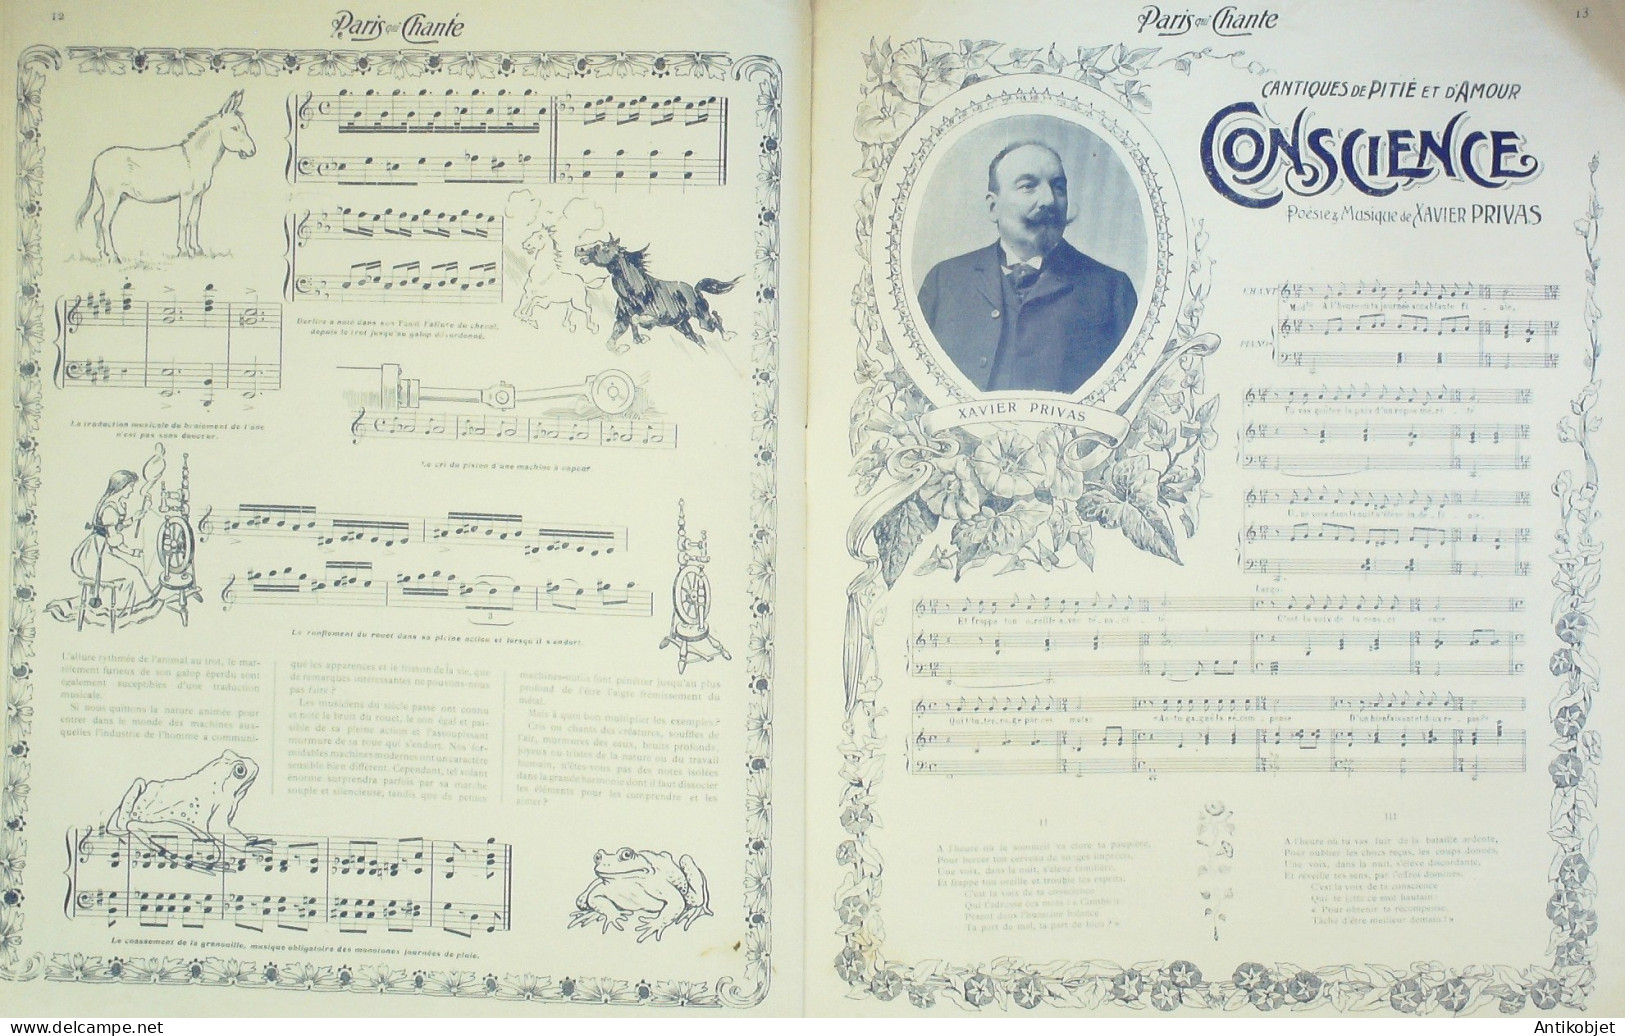 12
Paris qui Chante
Berlioz a noté dans son Faust l'allure du cheval,
depuis le trot jusqu'au galop désordonné.
La traduction musicale du braiement de l'âne
n'est pas sans douceur.
Le cri du piston d'une machine à vapeur
Le ronflement du rouet dans sa pleine action et lorsqu'il s'endort.
L'allure rythmée de l'animal au trot, le mar-
tèlement furieux de son galop éperdu sont
également suceptibles d'une traduction
musicale.
Si nous quittons la nature animée pour
entrer dans le monde des machines aux-
quelles l'industrie de l'homme a communi-
qué les apparences et le frisson de la vie, que
de remarques intéressantes ne pouvons-nous
pas faire?
Les musiciens du siècle passé ont connu
et noté le bruit du rouet, le son égal et pai-
sible de sa pleine action et l'assoupissant
murmure de sa roue qui s'endort. Nos for-
midables machines modernes ont un caractère
sensible bien différent. Cependant, tel volant
énorme surprendra parfois par sa marche
souple et silencieuse, tandis que de petites
machines-outils font pénétrer jusqu'au plus
profond de l'être l'aigre frémissement du
métal.
Mais à quoi bon multiplier les exemples?
Cris ou chants des créatures, souffles de
l'air, murmures des eaux, bruits profonds,
joyeux ou tristes de la nature ou du travail
humain, n'êtes-vous pas des notes isolées
dans la grande harmonie dont il faut dissocier
les éléments pour les comprendre et les
aimer?
Le coassement de la grenouille, musique obligatoire des monotones journées de pluie.
Paris qui Chante
13
CANTIQUES DE PITIÉ ET D'AMOUR
CONSCIENCE
Poésie & Musique de XAVIER PRIVAS
XAVIER PRIVAS
CHANT
A l'heure où ta journée accablante
PIANO
Tu vas goûter la paix d'un repos mérité
U_ne voix dans la nuit s'élève
Largo
Et frappe ton o_reille a_vec
C'est la voix de ta conscience
Qui t'in_ter_ro_ge par ces mots:
"As-tu ga_gné la ré_com_pense
D'un bienfaisant et doux re_pos?"
II
A l'heure où le sommeil va clore ta paupière,
Pour bercer ton cerveau de songes imprécis,
Une voix, dans la nuit, s'élève familière,
Et frappe ton oreille et trouble tes esprits.
C'est la voix de ta conscience
Qui t'adresse ces mots: « Combien
Pèsent dans l'humaine balance
Ta part de mal, ta part de bien? »
III
A l'heure où tu vas fuir de la bataille ardente,
Pour oublier les chocs reçus, les coups donnés,
Une voix, dans la nuit, s'élève discordante,
Et réveille tes sens, par l'effroi dominés.
C'est la voix de ta conscience
Qui te jette ce mot hautain:
« Pour obtenir ta récompense,
Tâche d'être meilleur demain! »
Antikobjet